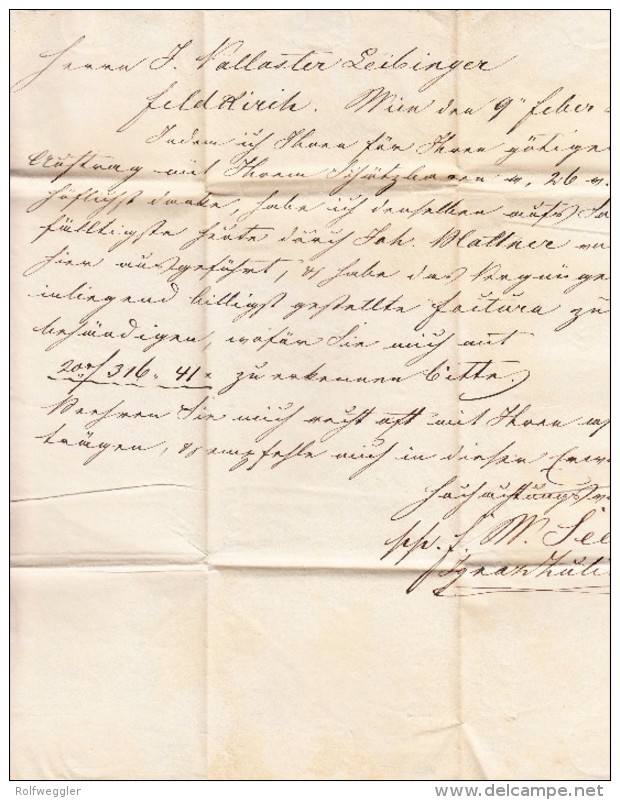 Herrn J. Vallaster Leibinger
Feldkirch. Wien den 9" Feber
Indem ich Ihnen für Ihren gütigen
Auftrag mit Ihrem Schätzbaren v. 26 v.
höflichst danke, habe ich denselben aufs Sorg
fälltigste heute durch Joh. Blattner von
hier ausgeführt, & habe das Vergnügen
inliegend billigst gestellte Factura zu
behändigen, wofür Sie mich mit
f 316. 41 x zu erkennen bitte.
Beehren Sie mich recht oft mit Ihren
trägen, & empfehle mich in dieser Erwar
hochachtungsvo
pp. J. M.
Ignaz
Rolfweggler